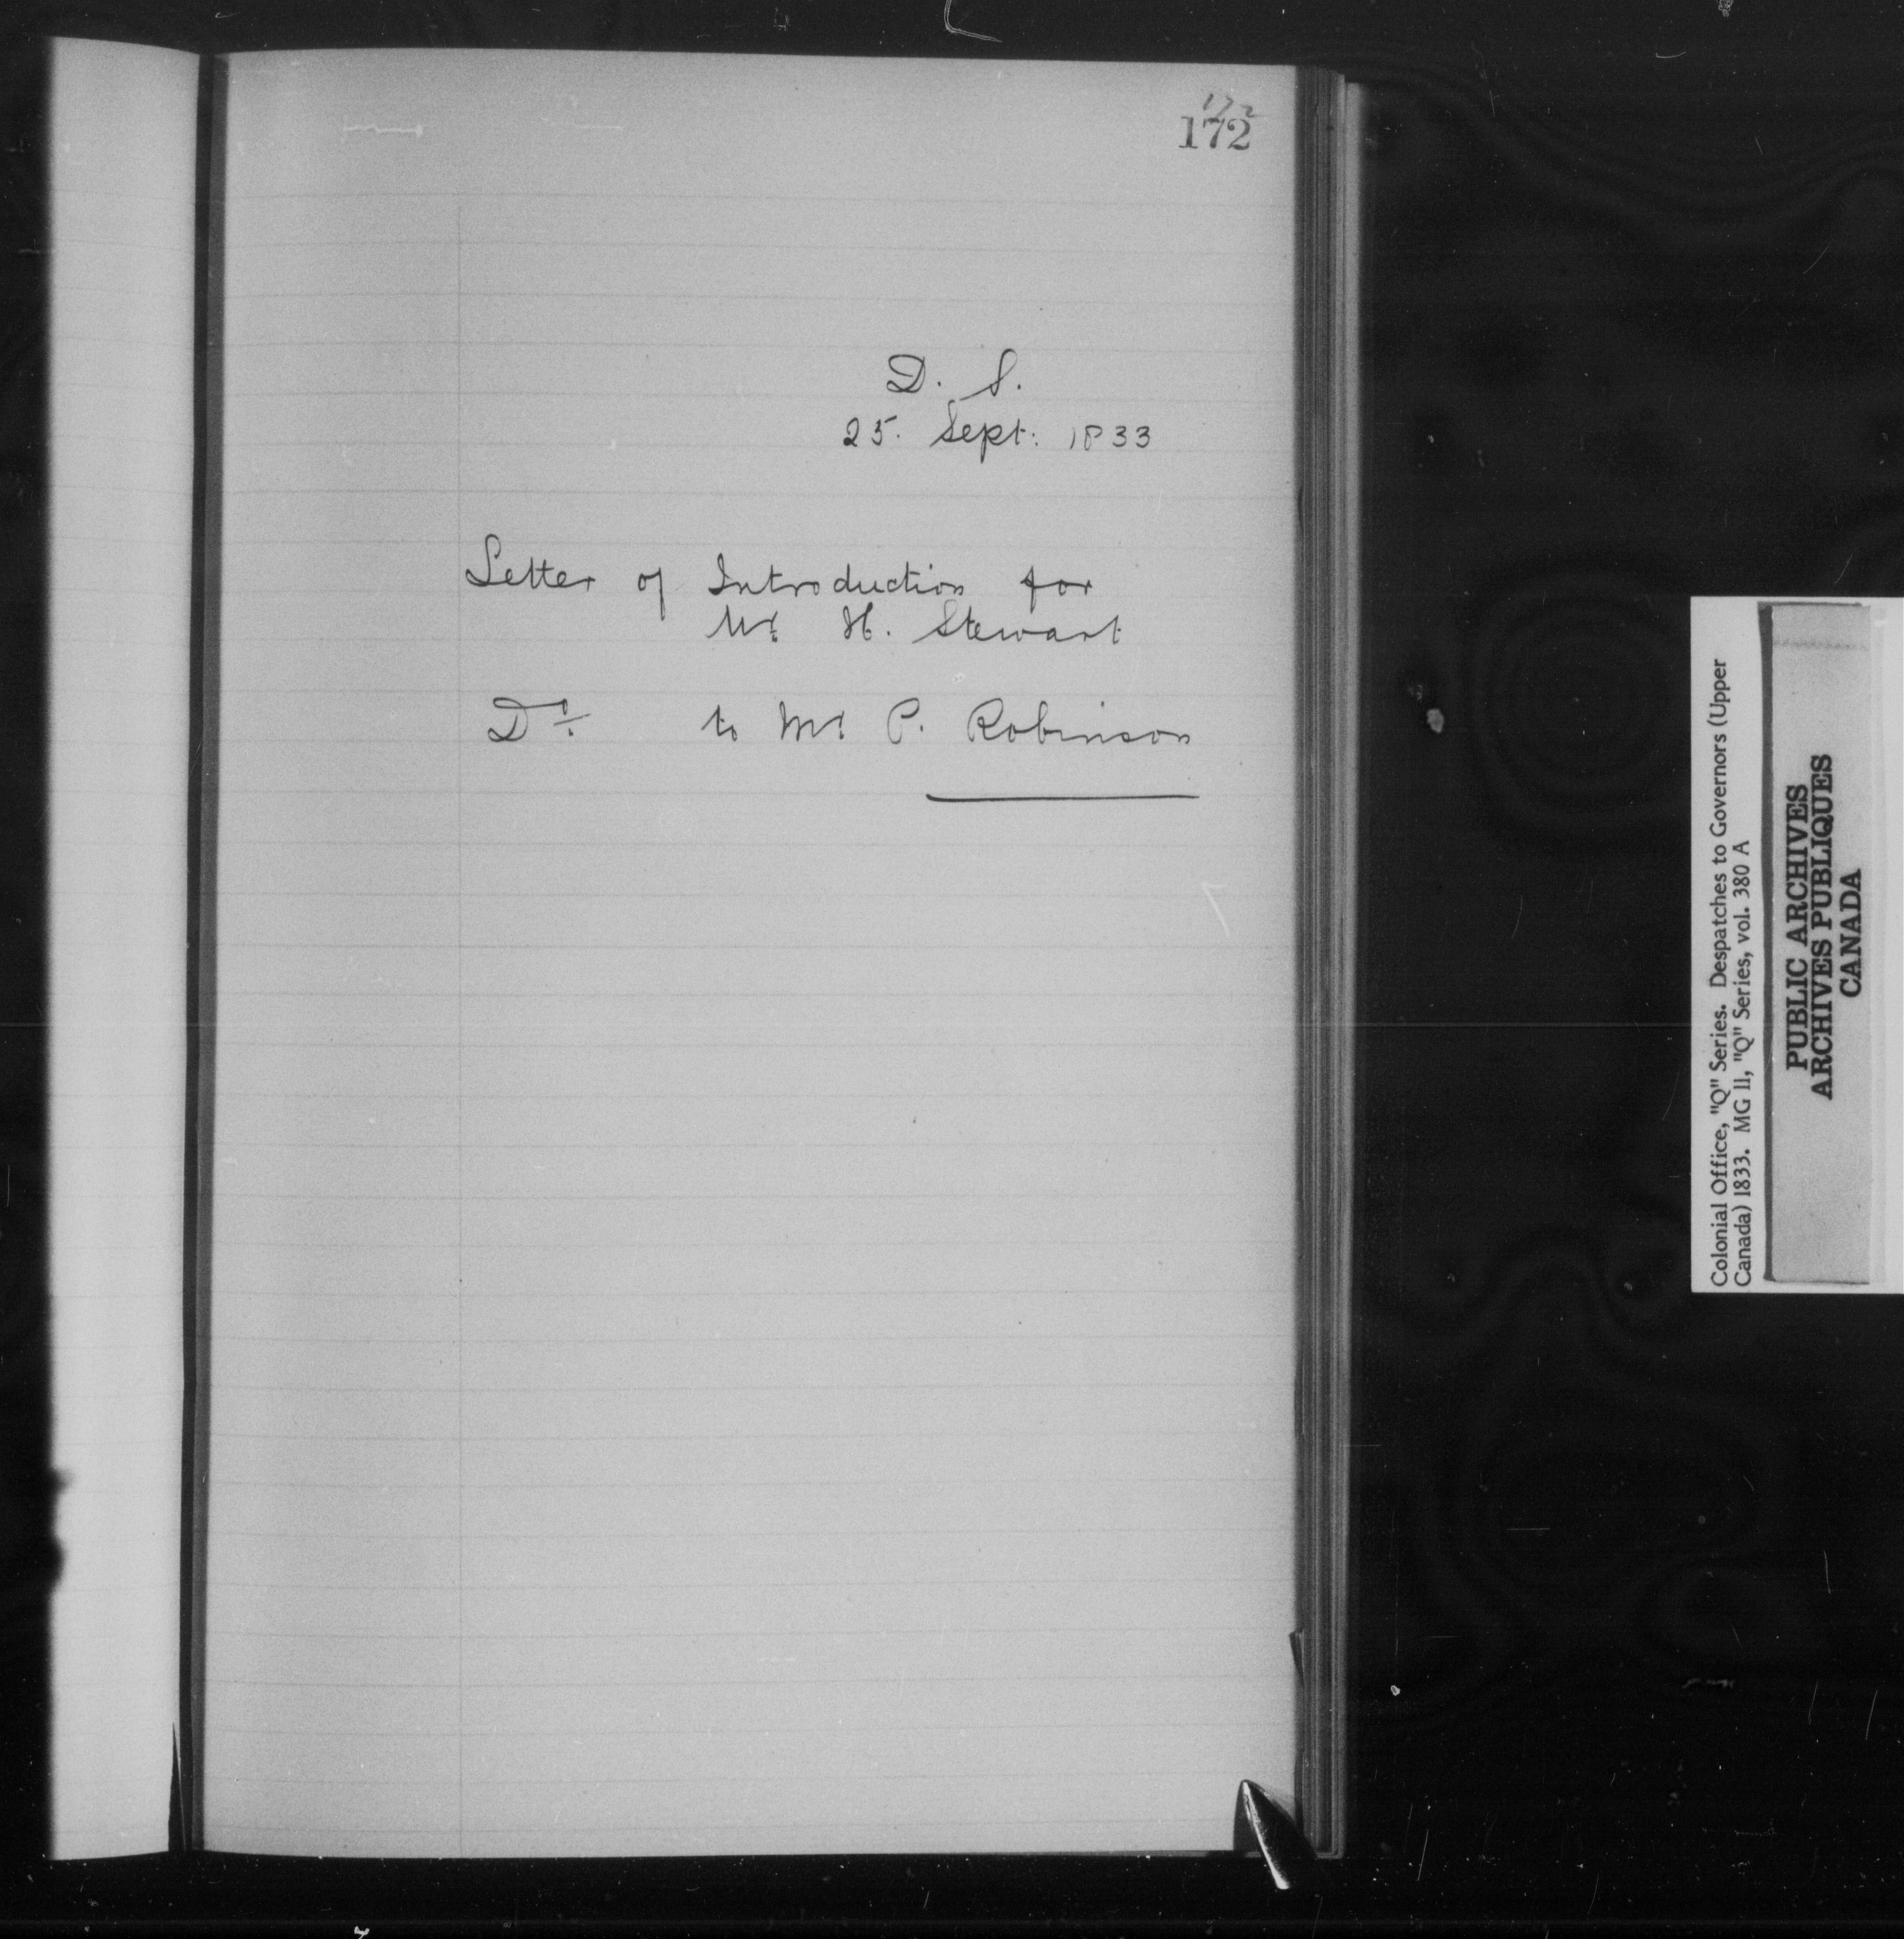 172
172
D. S.
25. Sept: 1833
Letter of Introduction for
Mr. H. Stewart
Do. to Mr. P. Robinson
Colonial Office, "Q" Series. Despatches to Governors (Upper
Canada) 1833. MG 11, "Q" Series, vol. 380 A
PUBLIC ARCHIVES
ARCHIVES PUBLIQUES
CANADA